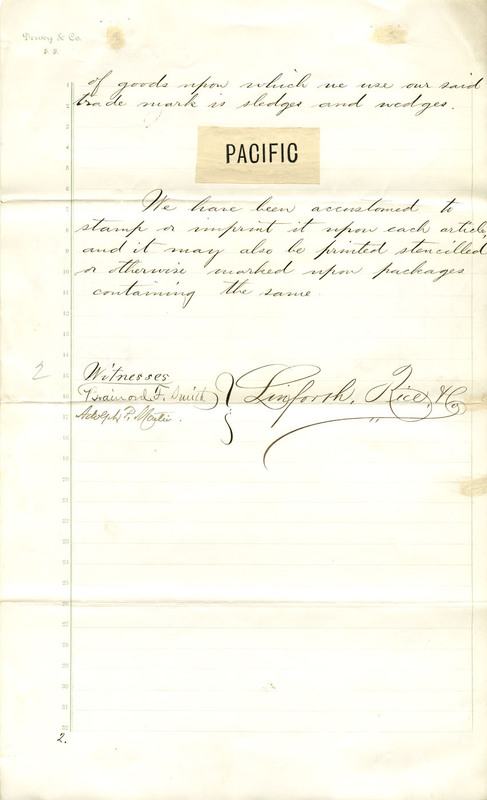 Dewey & Co.
S. F.
of goods upon which we use our said
trade mark is sledges and wedges.
PACIFIC
We have been accustomed to
stamp or imprint it upon each article,
and it may also be printed stencilled
or otherwise marked upon packages
containing the same.
2
Witnesses
Brainard F. Smith
Adolph P.
Linforth, Rice, & Co
2.